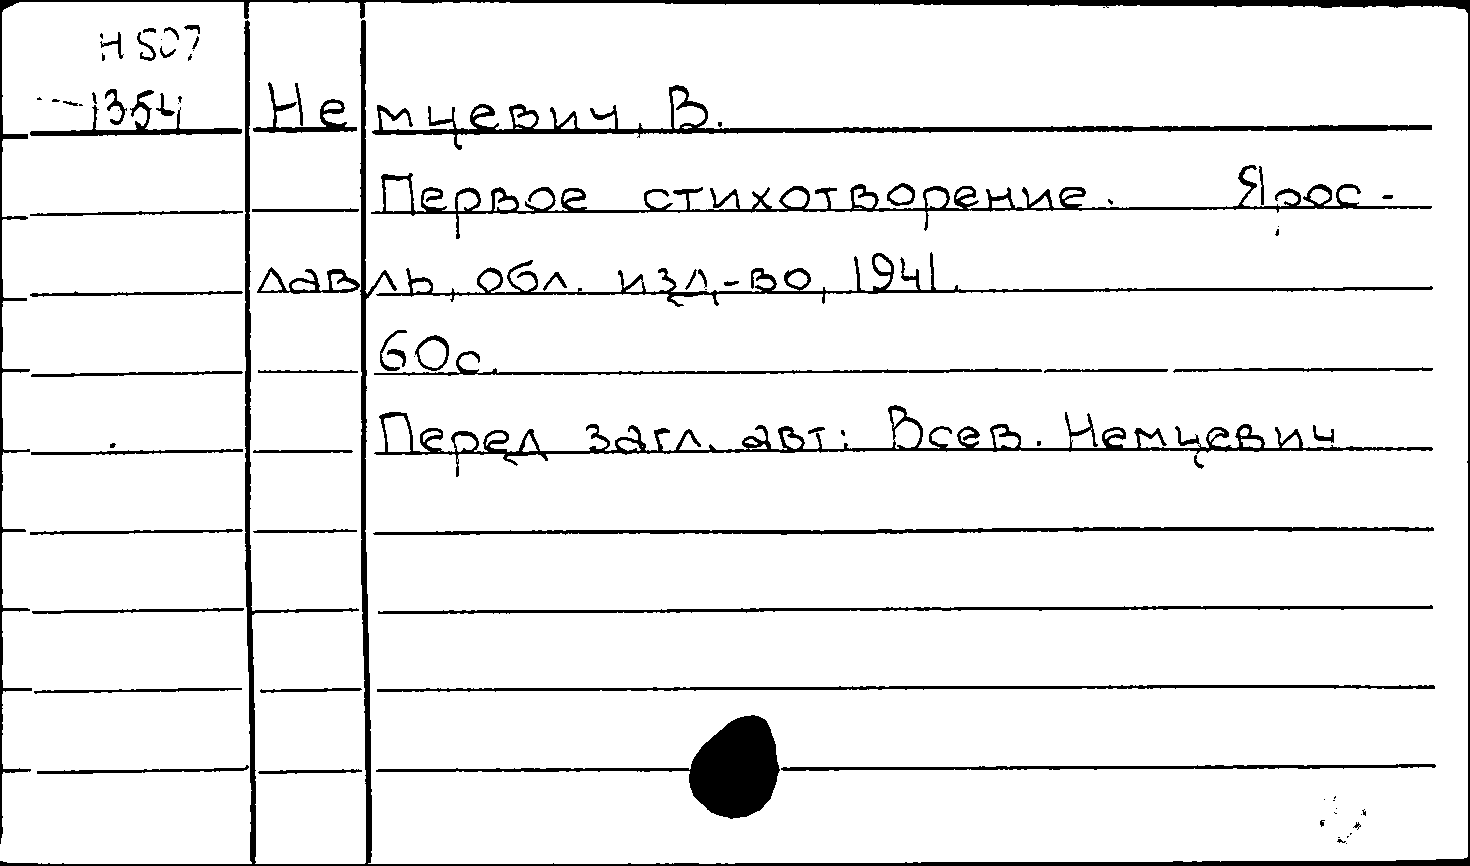 Н 507
1354
Немцевич, В.
Первое стихотворение. Ярос-
лавль, обл. изд-во, 1941.
60с.
Перед загл. авт: Всев. Немцевич